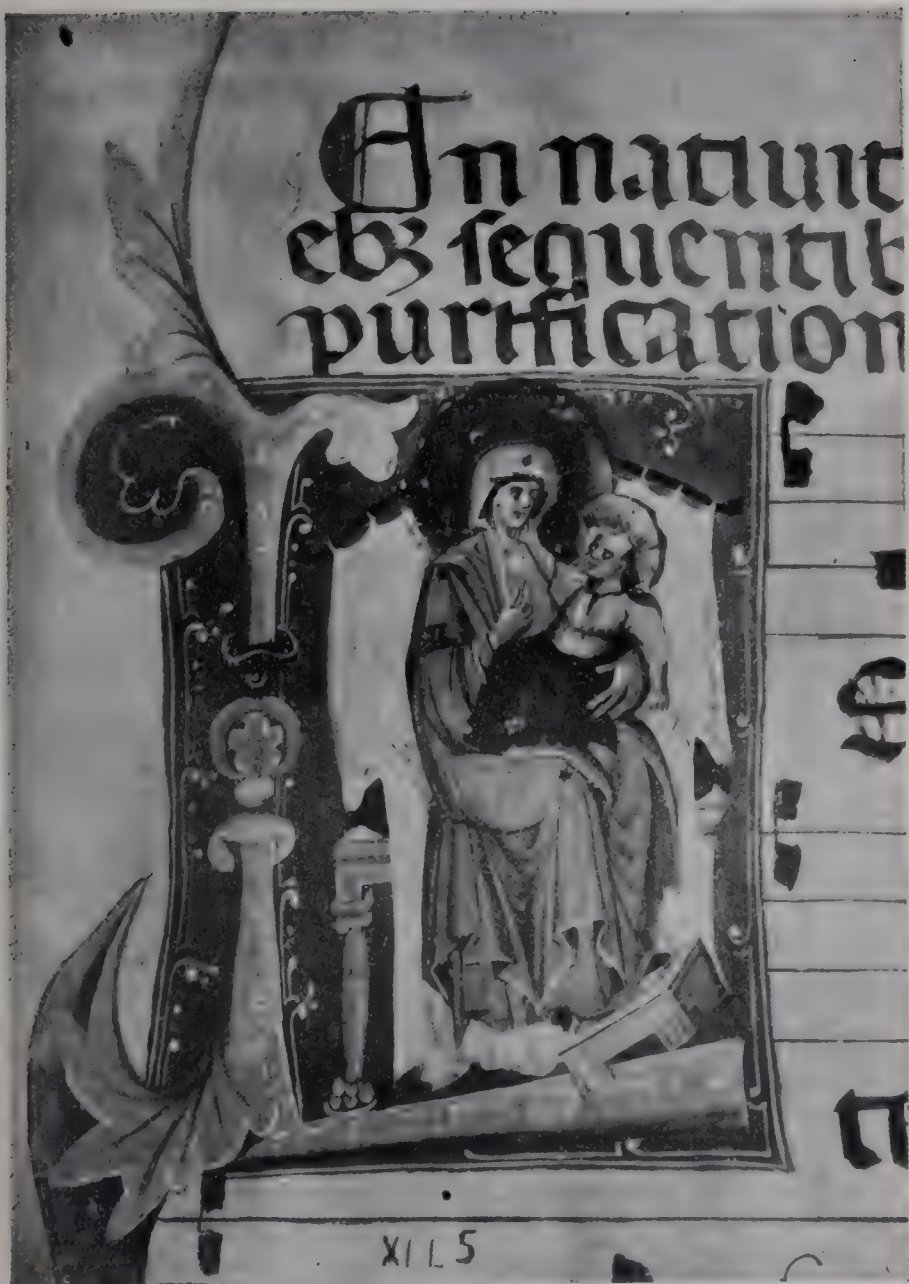 In natiuit
ebꝫ sequentib
purification
XII L 5